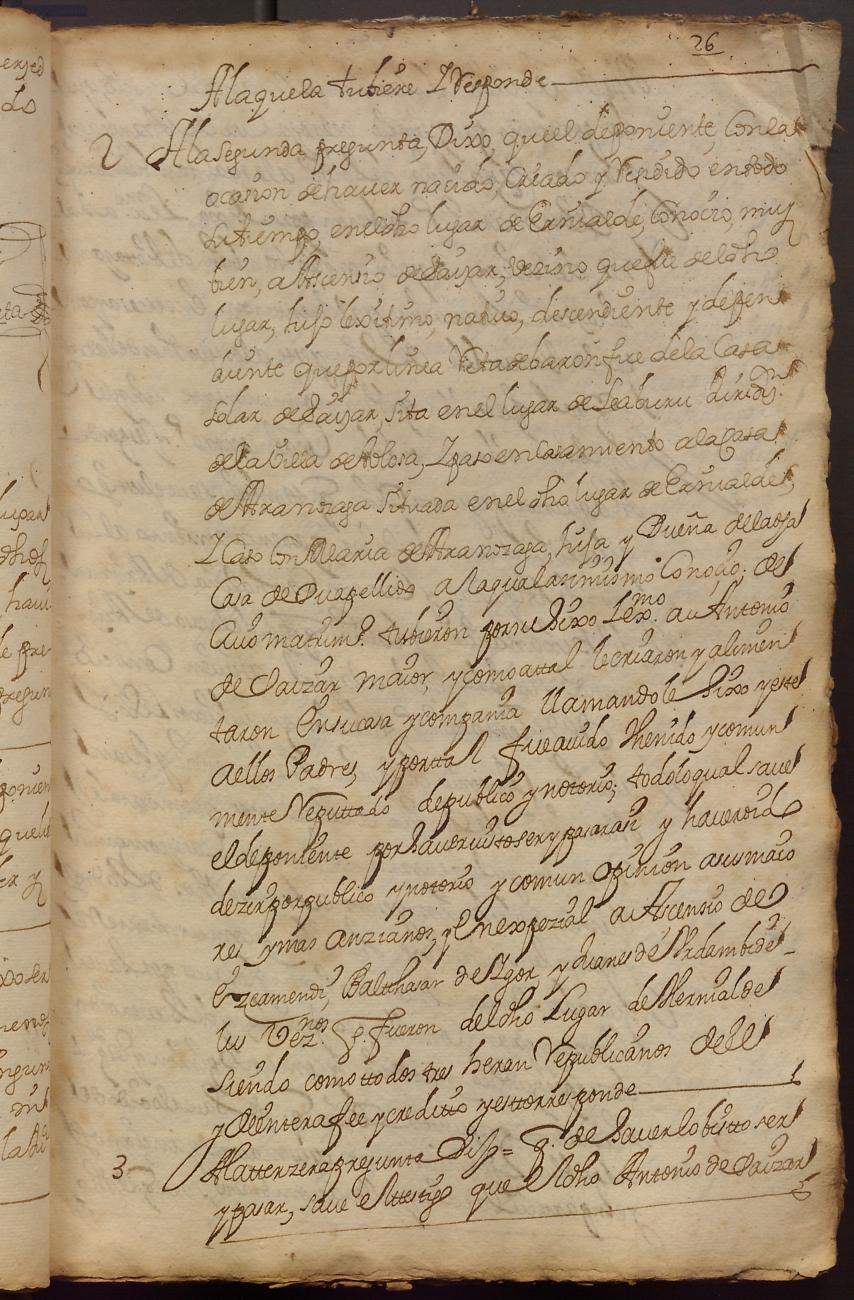 26
A la que la tubiere Y Responde
2 A la segunda pregunta, Dixo, que el deponiente, Con la
ocasion de haver nacido, Criado y Residido en todo
su tiempo, en el dho lugar de Ernialde, Conocio, muy
bien, a Ascensio de Saizar, Vezino que fue del dho
lugar, hijo lexitimo, natibo, descendiente y depen
diente que por linea Reta de baron fue de la Casa
solar de Saizar, sita en el lugar de Leaburu Juridin.
de la Villa de tolosa, Y paso en Casamiento a la Casa
de Aranzaga situada en el dho lugar de Ernialde,
Y Caso Con Maria de Aranzaga, hija y Dueña de la dha
Casa de su apellido a la qual asimismo Conozio; de
Cuio matrim.º tubieron por su hixo Lexmo. a Antonio
de Saizar maior, y como a tal le criaron y alimen
taron En su casa y compania llamandole hixo y este
a ellos Padres, y por tal fue auido thenido y comun
mente Reputtado de publico y notorio; todo lo qual save
el deponiente por haver visto ser y pasar asi y haver oido
dezir por publico y notorio y comun opinion a sus maio
res y mas anzianos, y En expezial a Ascensio de
Erzcamendi, Balthasar de Ygor y Juanes de Ardambide
les Veznos. q. fueron del dho Lugar de Hernialde
siendo como ttodos tres heran Republicanos de el
y de entera fee y creditto y esto responde
3 A la tterzera pregunta Dijo = q. de haverlo bistto ser
y pasar, save el ttestigo que el dho Antonio de Saizar